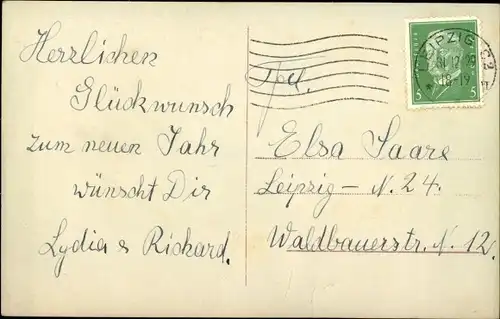 Herzlichen
Glückwunsch
zum neuen Jahr
wünscht Dir
Lydia & Rickard.
LEIPZIG C2
31.12.29
18-19
5 5
Elsa Saare
Leipzig – N. 24.
Waldbauerstr. N. 12.